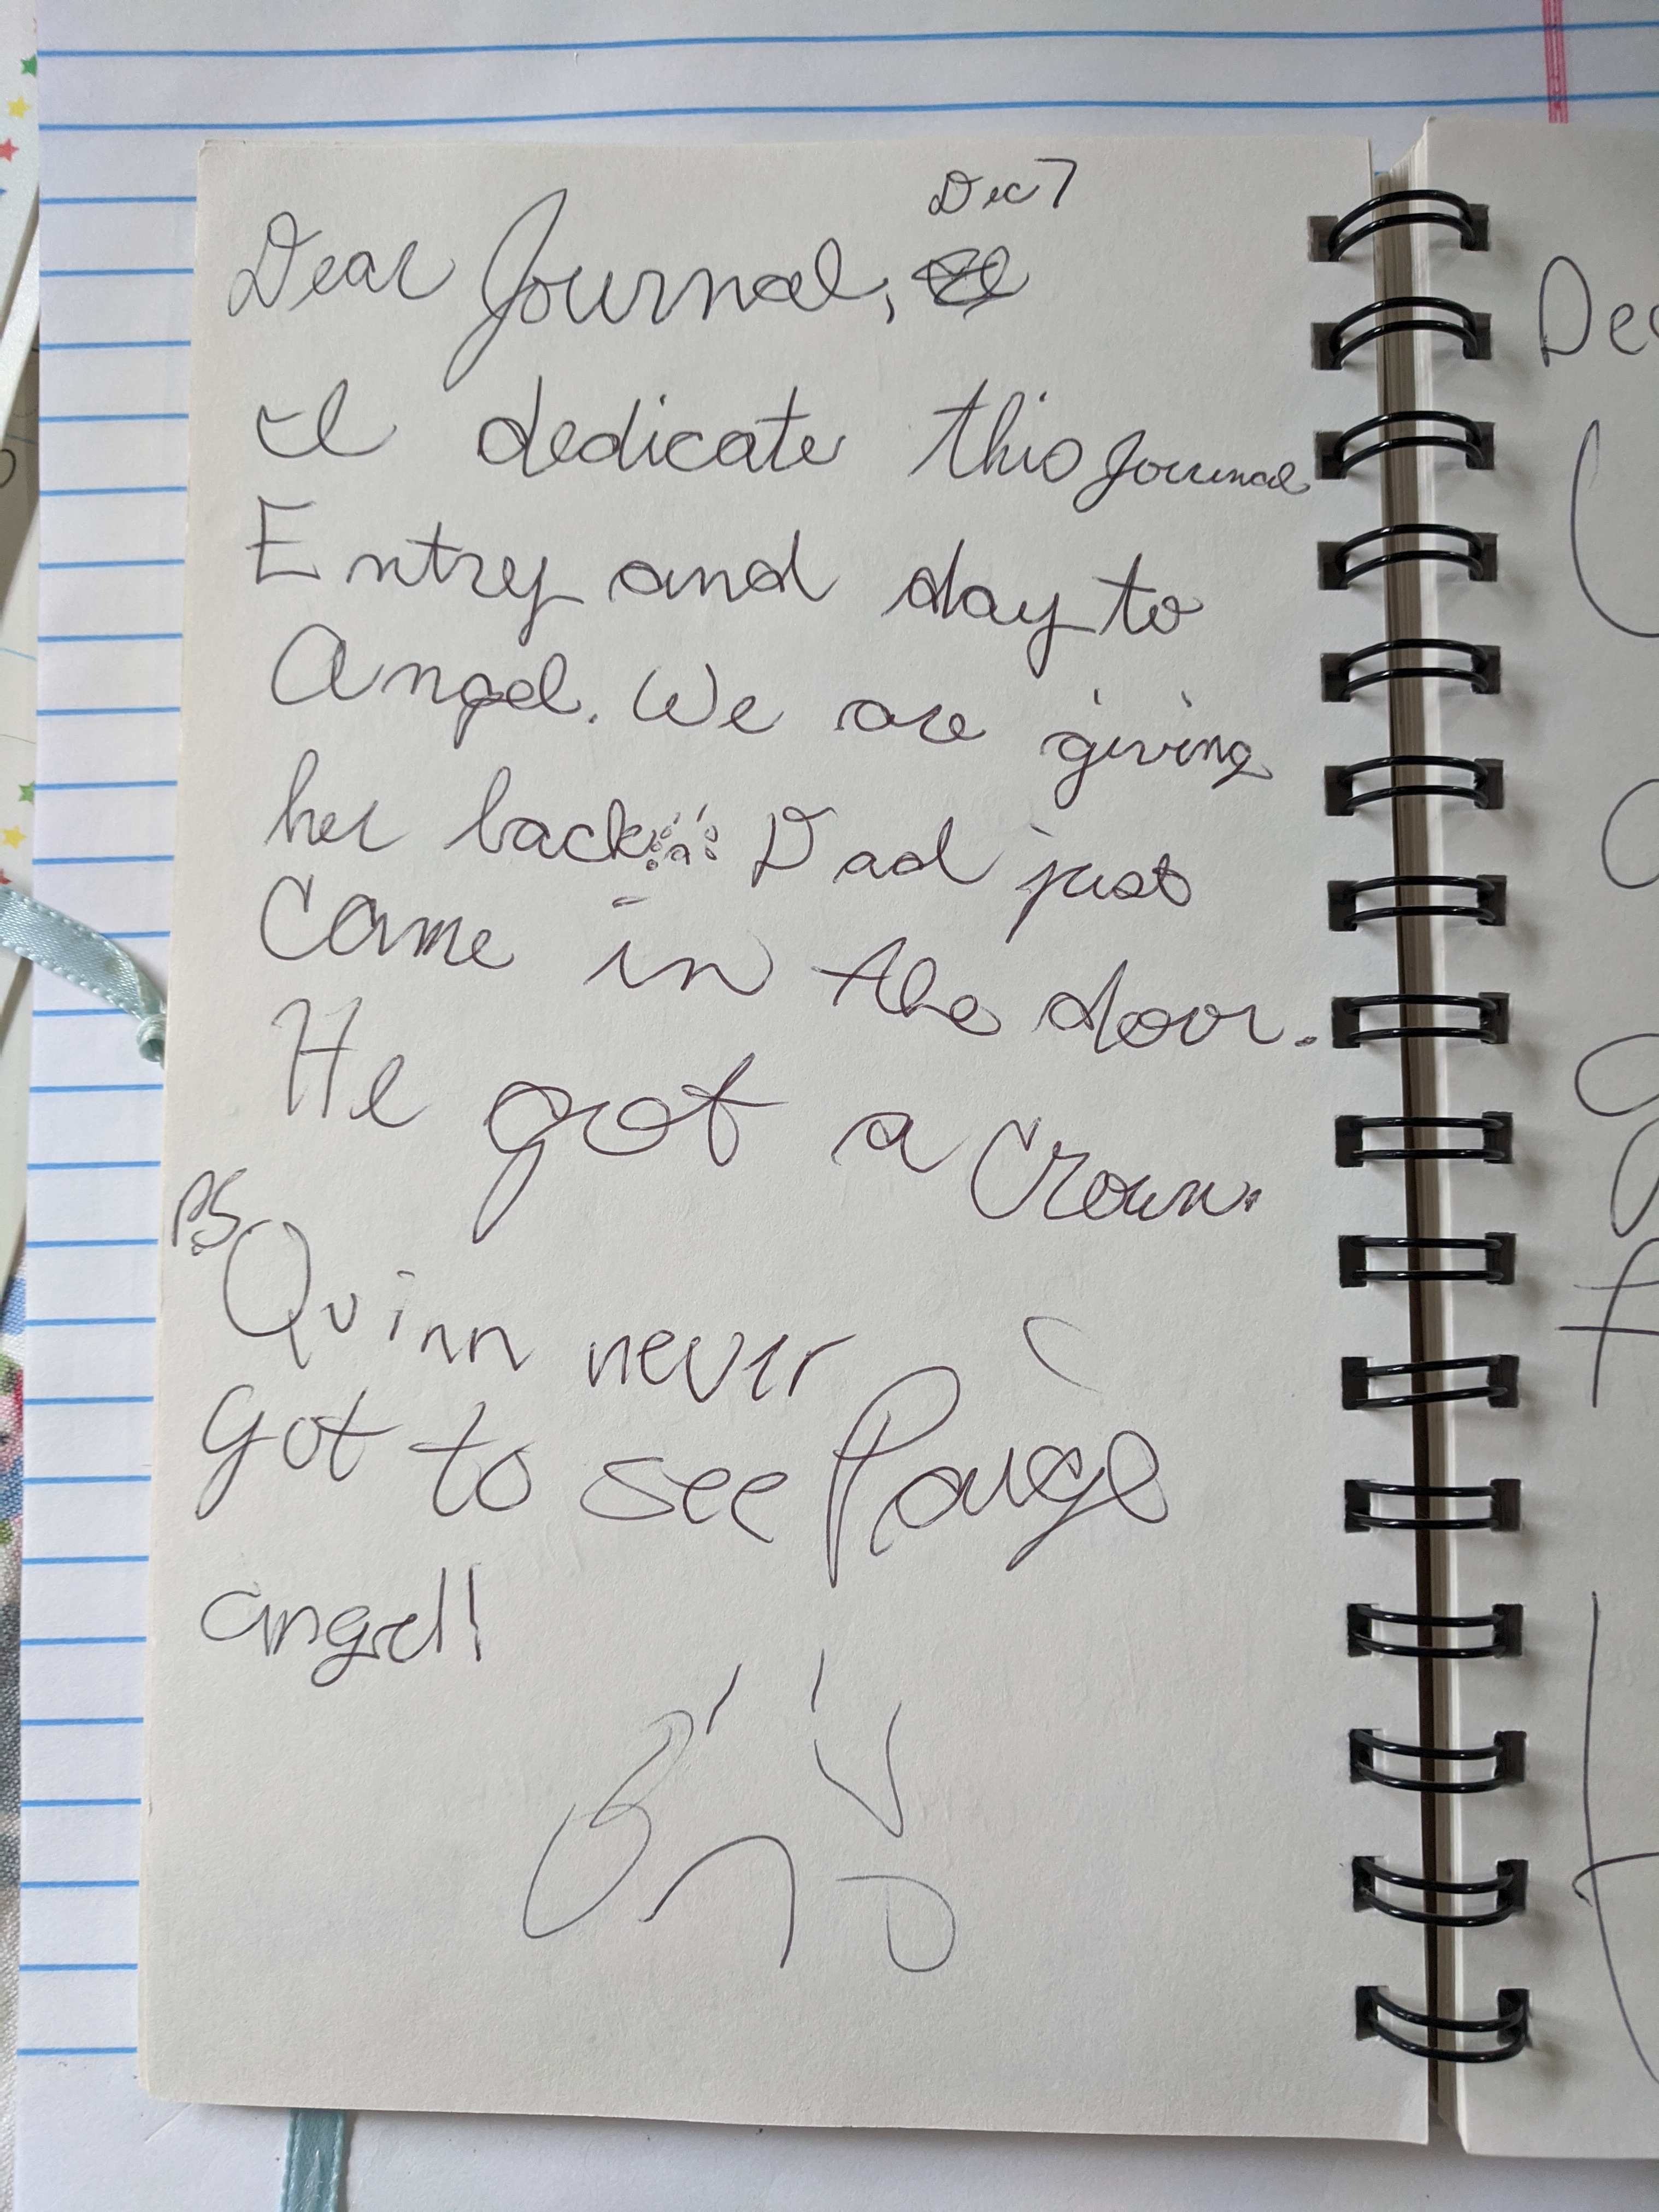 Dec 7
Dear Journal,
I dedicate this Journal
Entry and day to
Angel. We are giving
her back Dad just
came in the door.
He got a crown.
P.S
Quinn never
got to see Paige
angel!
De